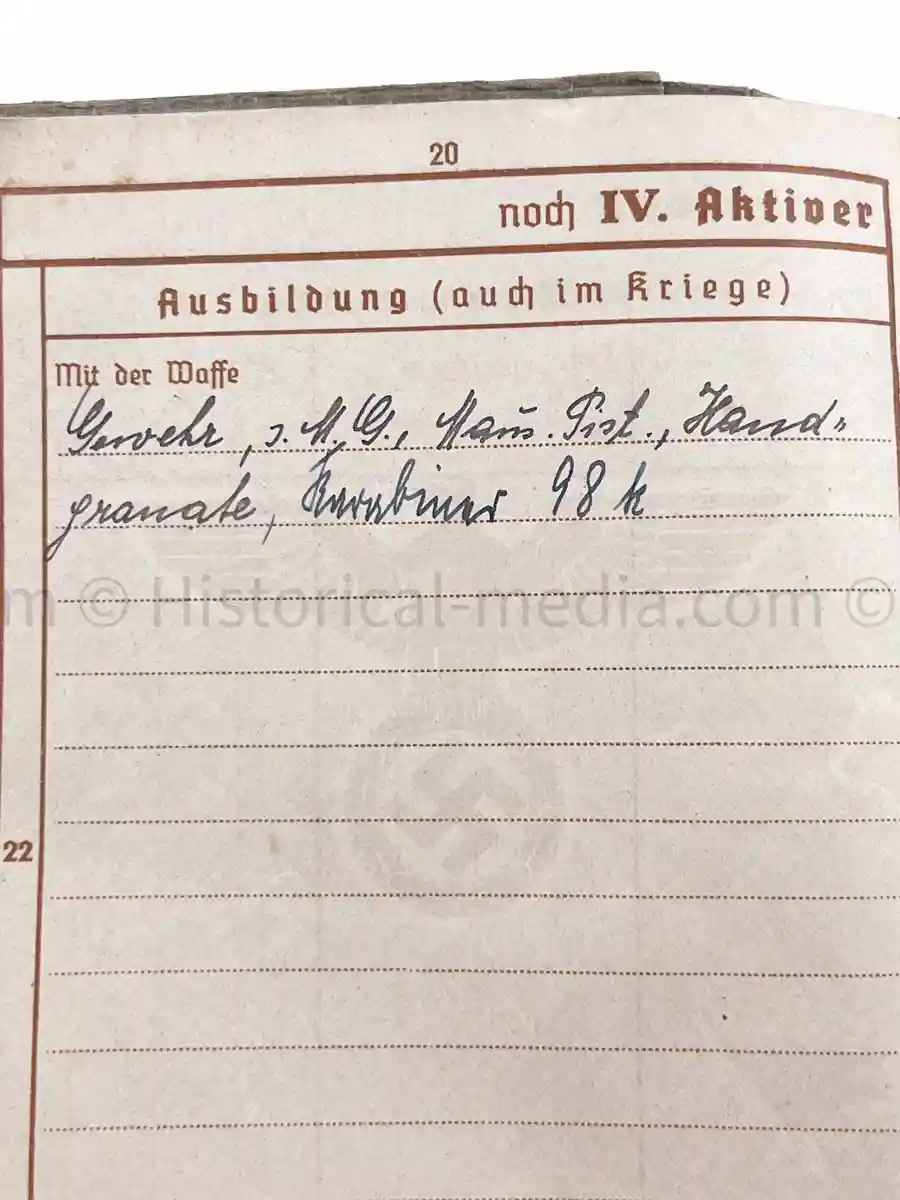 20
noch IV. Aktiver
Ausbildung (auch im Kriege)
Mit der Waffe
Gewehr, s. M. G., Maus. Pist., Hand-
granate, Karabiner 98 k
m © Historical-media.com ©
22